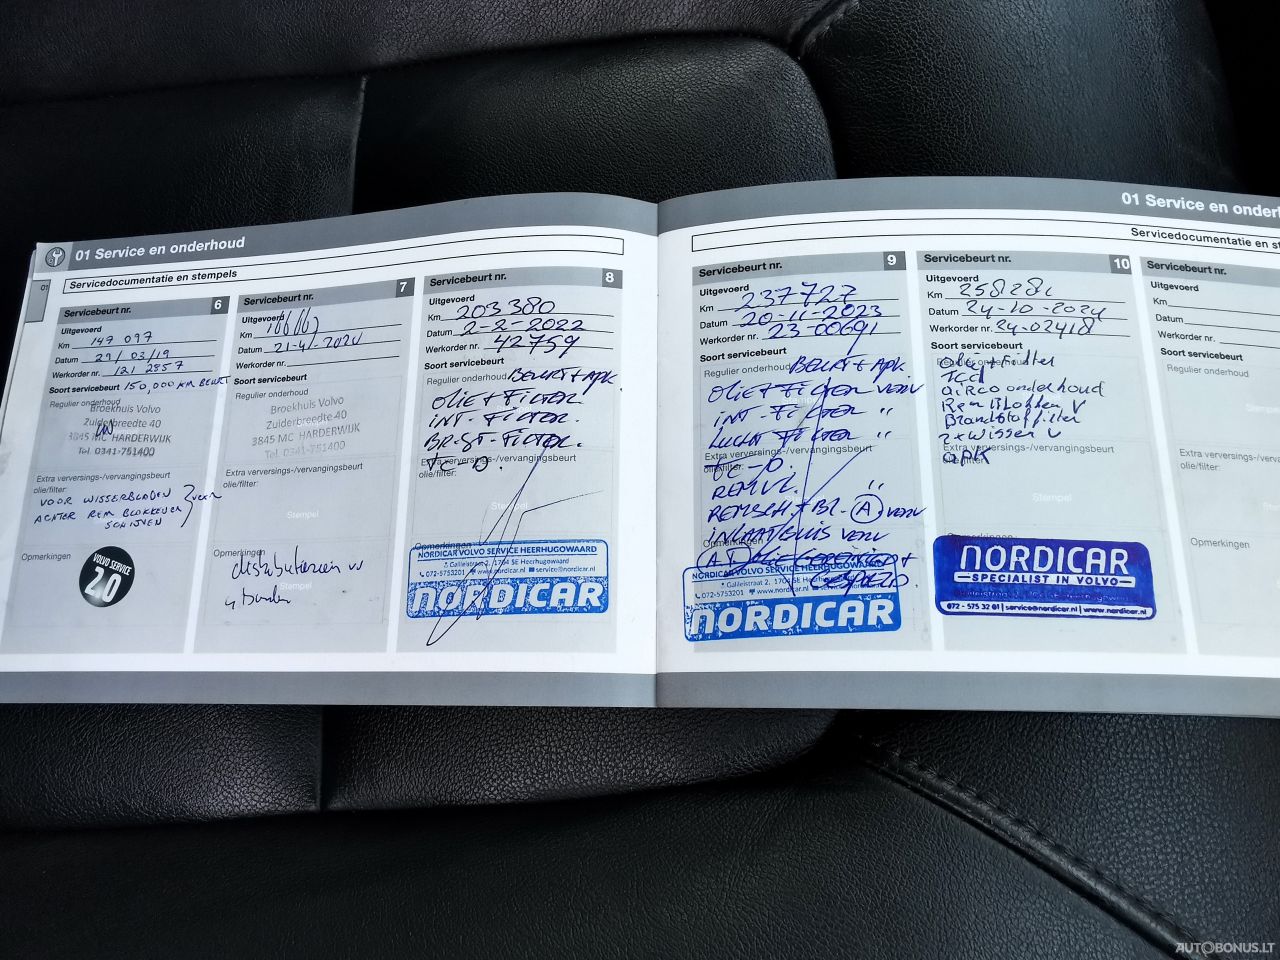 01 Service en onderhoud
Servicedocumentatie en stempels
01
Servicebeurt nr. 6
Uitgevoerd
Km 147 097
Datum 29/03/19
Werkorder nr. 121 2557
Soort servicebeurt 150,000 KM BEURT
Regulier onderhoud
Broekhuis Volvo
Zuiderbreedte 40
3845 MC HARDERWIJK
Tel. 0341-751400
Extra verversings-/vervangingsbeurt
olie/filter:
VOOR WISSERBLADEN
ACHTER REM BLOKKEN
SCHIJVEN
Opmerkingen
VOLVO SERVICE
2.0
Servicebeurt nr. 7
Uitgevoerd
Km
Datum
Werkorder nr.
Soort servicebeurt
Regulier onderhoud
Broekhuis Volvo
Zuiderbreedte 40
3845 MC HARDERWIJK
Tel. 0341-751400
Extra verversings-/vervangingsbeurt
olie/filter:
Stempel
Opmerkingen
4 banden
Servicebeurt nr. 8
Uitgevoerd
Km 203380
Datum 2-2-2022
Werkorder nr. 42759
Soort servicebeurt
Regulier onderhoud BEURT + APK.
OLIE + FILTER
INT-FILTER.
BR-ST-FILTER.
Extra verversings-/vervangingsbeurt
olie/filter:
Stempel
Opmerkingen
NORDICAR VOLVO SERVICE HEERHUGOWAARD
Galileistraat 2, 1704 SE Heerhugowaard
072-5753201 service@nordicar.nl
NORDICAR
01 Service en onder
Servicedocumentatie en s
Servicebeurt nr. 9
Uitgevoerd
Km 237727
Datum 20-11-2023
Werkorder nr. 23-00691
Soort servicebeurt
Regulier onderhoud BEURT + APK.
OLIE + FILTER VERV
INT-FILTER "
LUCHT FILTER "
Extra verversings-/vervangingsbeurt
olie/filter:
REMVL. "
REMSCH + BL. (A) VERV
Opmerkingen
NORDICAR VOLVO SERVICE HEERHUGOWAARD
Galileistraat 2, 1704 SE Heerhugowaard
072-5753201 www.nordicar.nl
NORDICAR
Servicebeurt nr. 10
Uitgevoerd
Km
Datum 24-10-2024
Werkorder nr. 24-02418
Soort servicebeurt
olie + Filter
airco onderhoud
Remblokken V
Brandstoffilter
2x wissen V
APK
Extra verversings-/vervangingsbeurt
olie/filter:
Stempel
NORDICAR
SPECIALIST IN VOLVO
072 - 575 32 01 | service@nordicar.nl | www.nordicar.nl
Servicebeurt nr.
Uitgevoerd
Km
Datum
Werkorder nr.
Soort servicebeurt
Regulier onderhoud
Extra verversings-/verva
olie/filter:
Opmerkingen
AUTOBONUS.LT